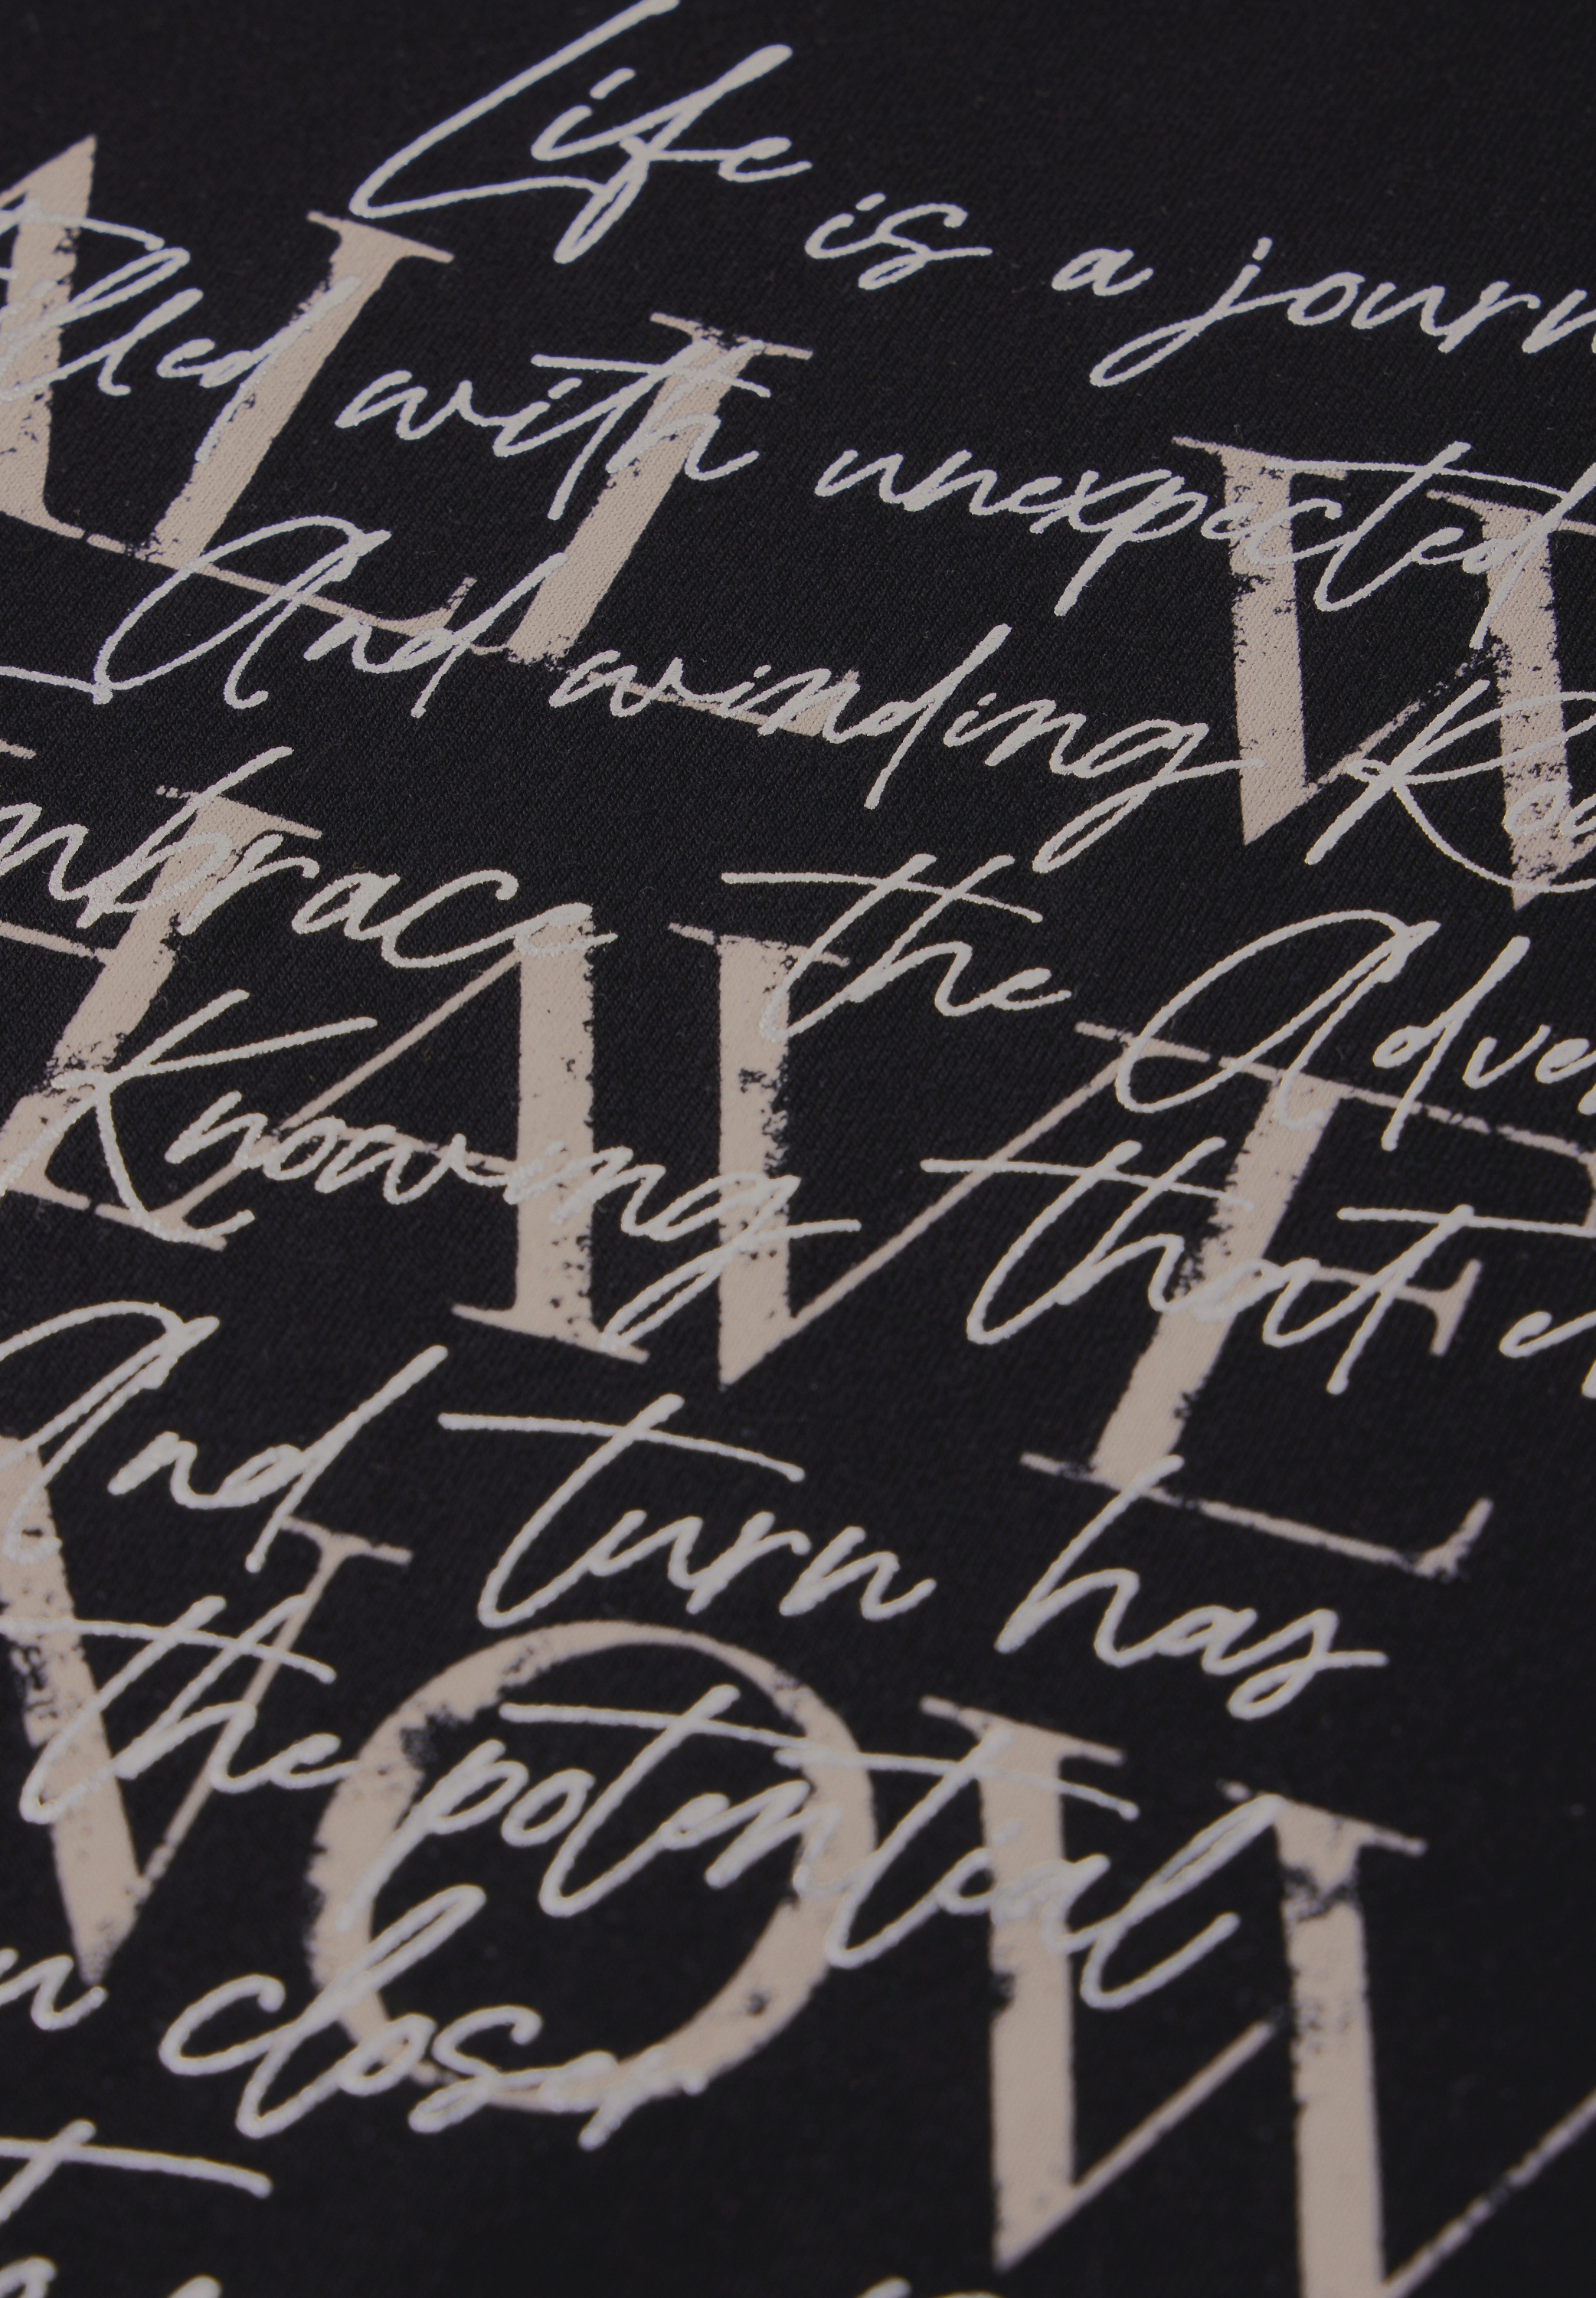 Life is a journ
illed with unexpected
ALL W
And winding Ro
Embrace the Adve
HAVE
Knowing that e
And turn has
the potential
NOW
n closer